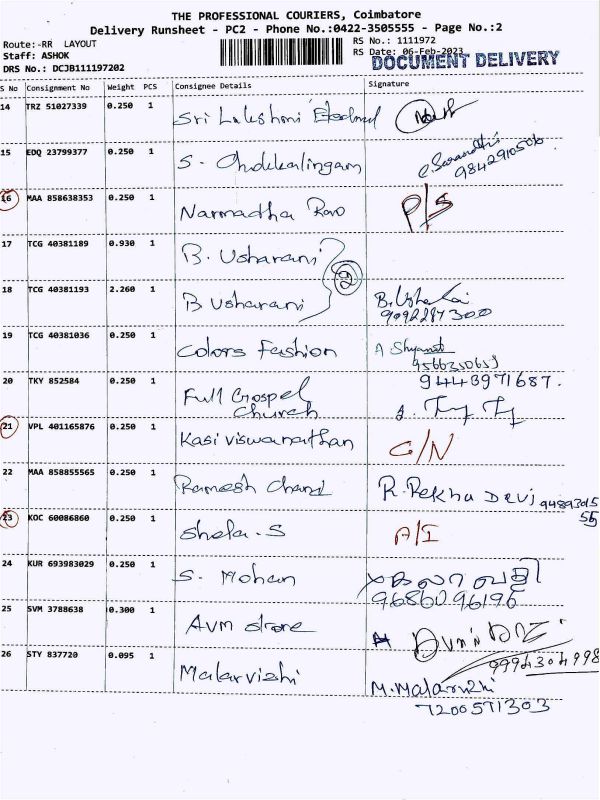 THE PROFESSIONAL COURIERS, Coimbatore
Delivery Runsheet - PC2 - Phone No.:0422-3505555 - Page No.:2
Route:-RR LAYOUT
RS No.: 1111972
Staff: ASHOK
RS Date: 06-Feb-2023
DOCUMENT DELIVERY
DRS No.: DCJB111197202
S No Consignment No Weight PCS Consignee Details Signature
14 TRZ 51027339 0.250 1 Sri Lakshmi
15 EDQ 23799377 0.250 1 S. Chokkalingam
9842910506
16 MAA 858638353 0.250 1 Narmadha Rao P/S
17 TCG 40381189 0.930 1 B. Usharani
2
18 TCG 40381193 2.260 1 B Usharani B. Usha
9092287300
19 TCG 40381036 0.250 1 Colors Fashion A
9566350653
20 TKY 852584 0.250 1 Full Gospel Church 9443971687.
21 VPL 401165876 0.250 1 Kasi Viswanathan C/N
22 MAA 858855565 0.250 1 Ramesh Chand R. Rekha Devi
23 KOC 60086860 0.250 1 Shela. S A/I
24 KUR 693983029 0.250 1 S. Mohan
9686096196
25 SVM 3788638 0.300 1 Avm store
9994304998
26 STY 837720 0.095 1 Malarvizhi M. Malarvizhi
7200571303